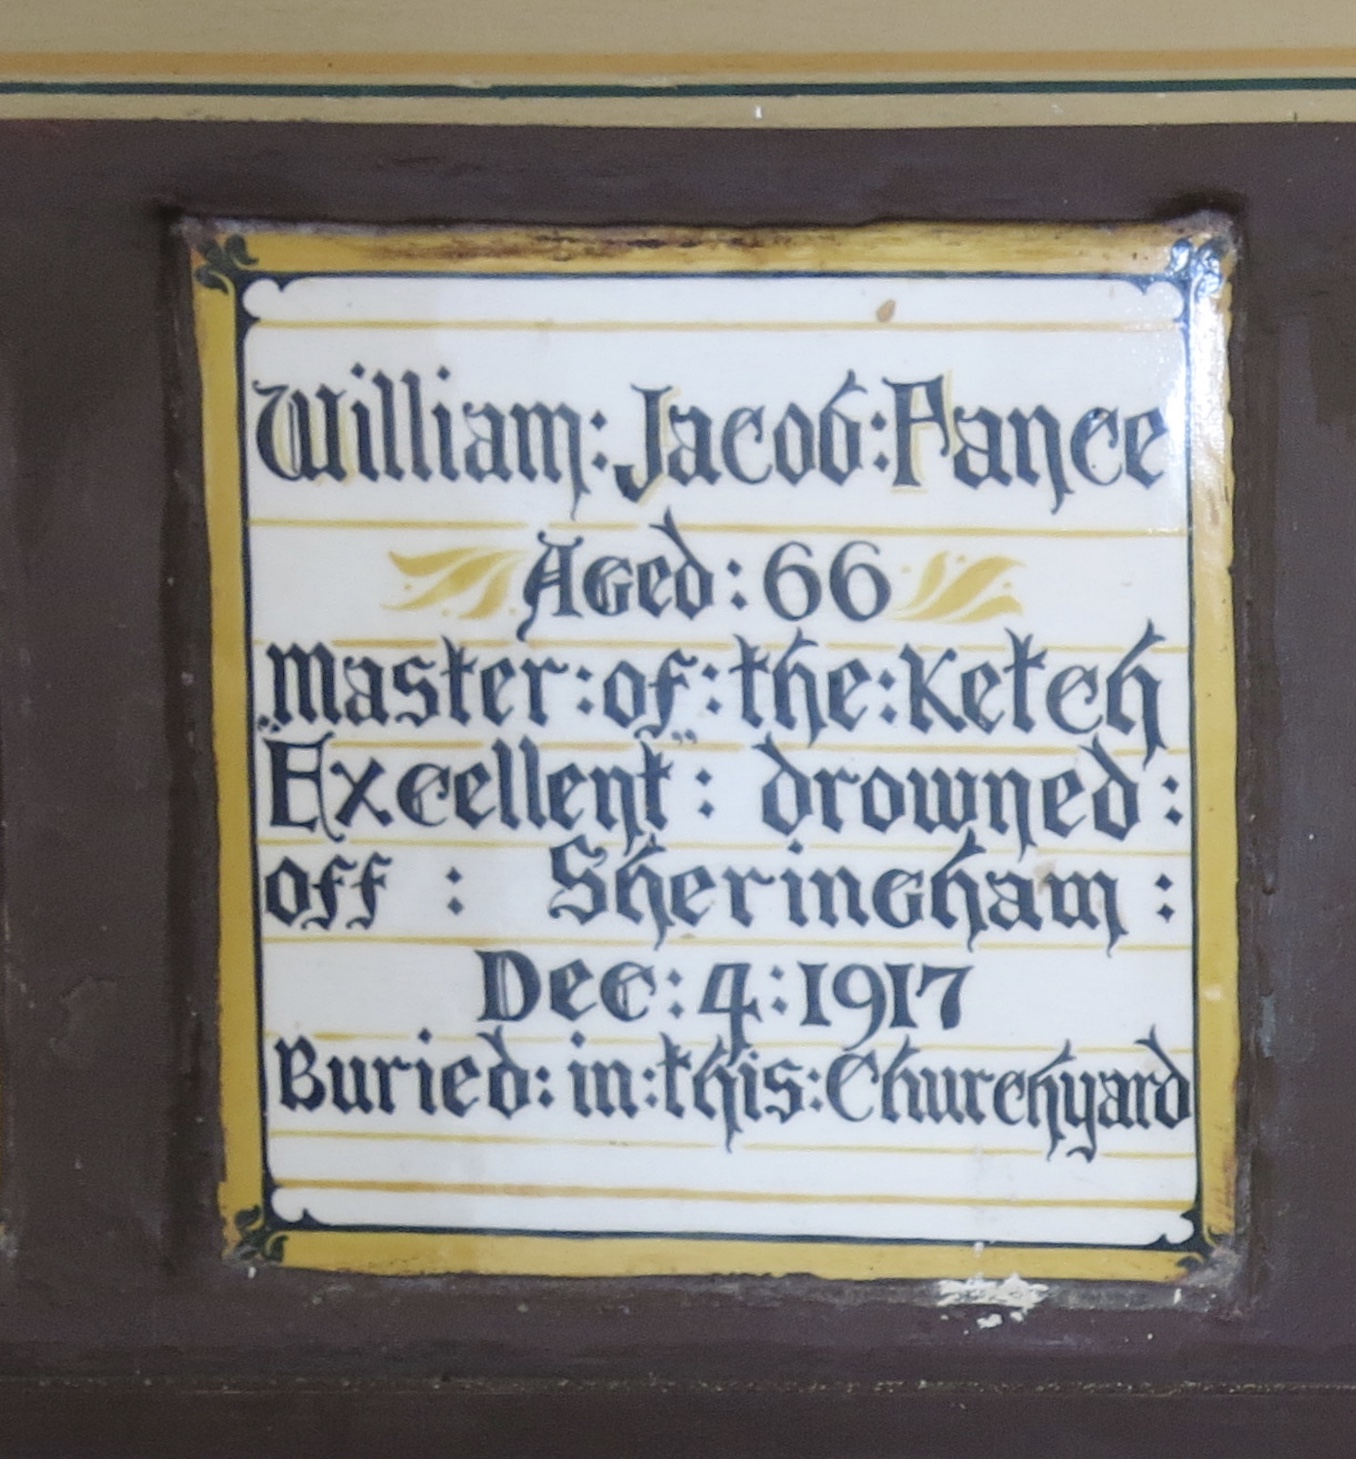 William: Jacob: Pance
Aged: 66
master: of: the: Ketch
"Excellent": drowned:
off : Sheringham :
Dec: 4: 1917
Buried: in: this: Churchyard